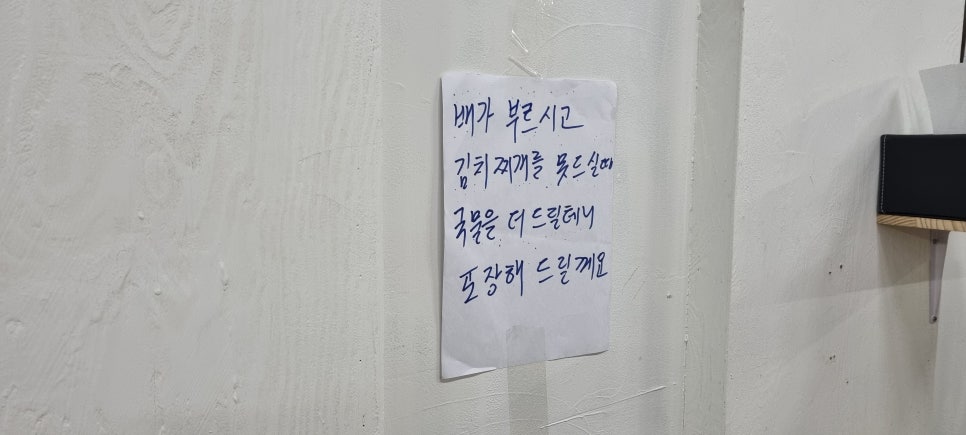 배가 부르시고
김치찌개를 못드실때
국물을 더 드릴테니
포장해 드릴께요